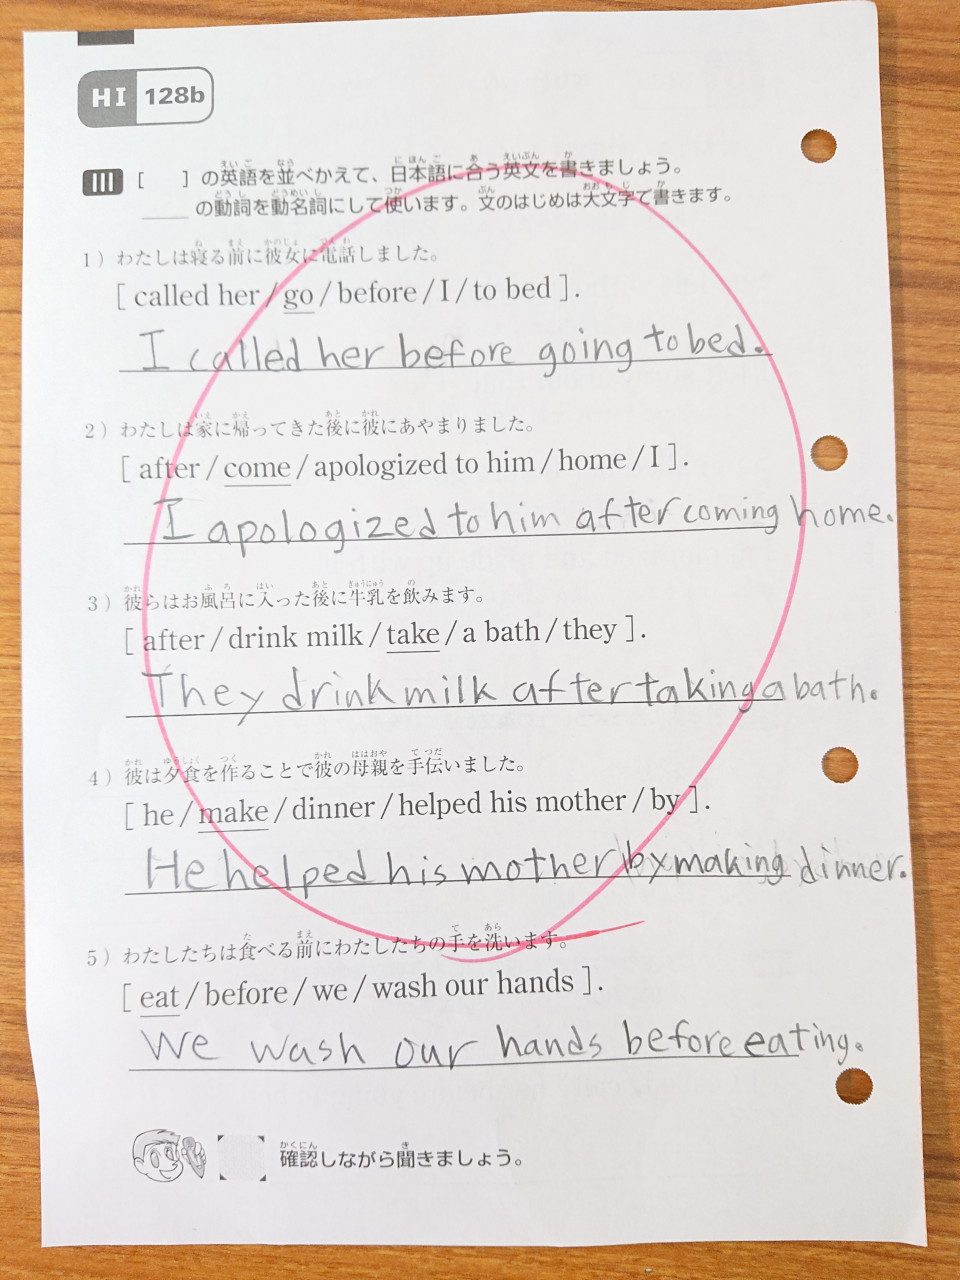 HI 128b
III [ ] の英語を並べかえて、日本語に合う英文を書きましょう。
___ の動詞を動名詞にして使います。文のはじめは大文字で書きます。
1) わたしは寝る前に彼女に電話しました。
[ called her / go / before / I / to bed ].
I called her before going to bed.
2) わたしは家に帰ってきた後に彼にあやまりました。
[ after / come / apologized to him / home / I ].
I apologized to him after coming home.
3) 彼らはお風呂に入った後に牛乳を飲みます。
[ after / drink milk / take / a bath / they ].
They drink milk after taking a bath.
4) 彼は夕食を作ることで彼の母親を手伝いました。
[ he / make / dinner / helped his mother / by ].
He helped his mother by making dinner.
5) わたしたちは食べる前にわたしたちの手を洗います。
[ eat / before / we / wash our hands ].
We wash our hands before eating.
確認しながら聞きましょう。